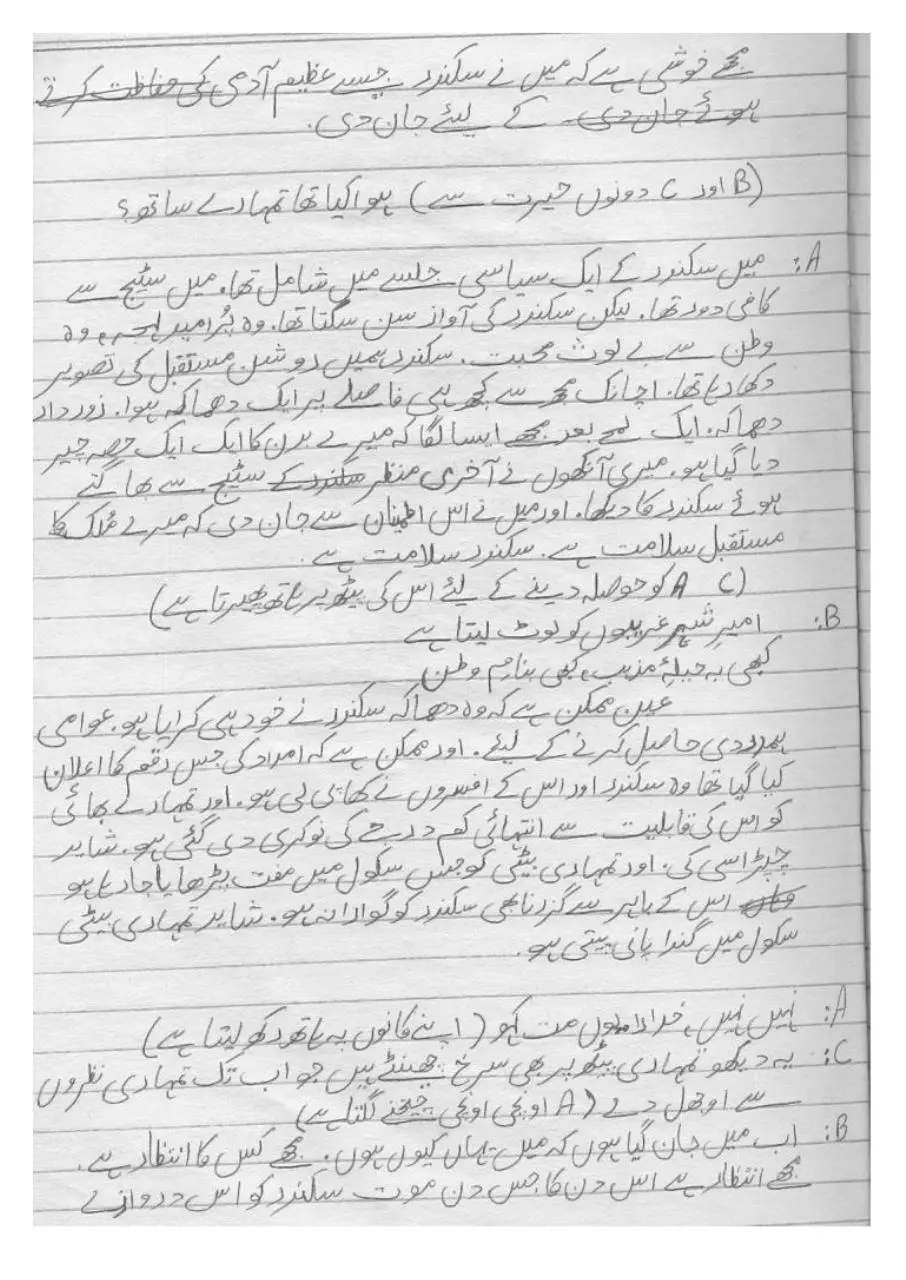 مجھے خوشی ہے کہ میں نے سکندر جیسے عظیم آدمی کی حفاظت کرتے
ہوئے جان دی۔ کے لیئے جان دی۔
(B اور C دونوں حیرت سے) ہوا کیا تھا تمہارے ساتھ؟
A: میں سکندر کے ایک سیاسی جلسے میں شامل تھا۔ میں سٹیج سے
کافی دور تھا۔ لیکن سکندر کی آواز سن سکتا تھا۔ وہ پُرامید لہجہ، وہ
وطن سے بے لوث محبت۔ سکندر ہمیں روشن مستقبل کی تصویر
دکھا رہا تھا۔ اچانک مجھ سے کچھ ہی فاصلے پر ایک دھماکہ ہوا۔ زوردار
دھماکہ۔ ایک لمحے بعد مجھے ایسا لگا کہ میرے بدن کا ایک ایک حصہ چیر
دیا گیا ہو۔ میری آنکھوں نے آخری منظر سکندر کے سٹیج سے بھاگتے
ہوئے سکندر کا دیکھا۔ اور میں نے اس اطمینان سے جان دی کہ میرے مُلک کا
مستقبل سلامت ہے۔ سکندر سلامت ہے۔
(C A کو حوصلہ دینے کے لیئے اس کی پیٹھ پر ہاتھ پھیرتا ہے)
B: امیرِ شہر غریبوں کو لوٹ لیتا ہے
کبھی بہ حیلۂ مذہب، کبھی بنامِ وطن
عین ممکن ہے کہ وہ دھماکہ سکندر نے خود ہی کرایا ہو۔ عوامی
ہمدردی حاصل کرنے کے لیئے۔ اور ممکن ہے کہ امداد کی جس رقم کا اعلان
کیا گیا تھا وہ سکندر اور اس کے افسروں نے کھا پی لی ہو۔ اور تمہارے بھائی
کو اس کی قابلیت سے انتہائی کم درجے کی نوکری دی گئی ہو۔ شاید
چپڑاسی کی۔ اور تمہاری بیٹی کو جس سکول میں مفت پڑھایا جا رہا ہو
وہاں اس کے باہر سے گزرنا بھی سکندر کو گوارا نہ ہو۔ شاید تمہاری بیٹی
سکول میں گندا پانی پیتی ہو۔
A: نہیں نہیں، خدارا یوں مت کہو (اپنے کانوں پہ ہاتھ رکھ لیتا ہے)
C: یہ دیکھو تمہاری پیٹھ پر بھی سرخ چھینٹے ہیں جو اب تک تمہاری نظروں
سے اوجھل رہے (A اونچی اونچی چیخنے لگتا ہے)
B: اب میں جان گیا ہوں کہ میں یہاں کیوں ہوں۔ مجھے کس کا انتظار ہے۔
مجھے انتظار ہے اس دن کا جس دن موت سکندر کو اس دروازے